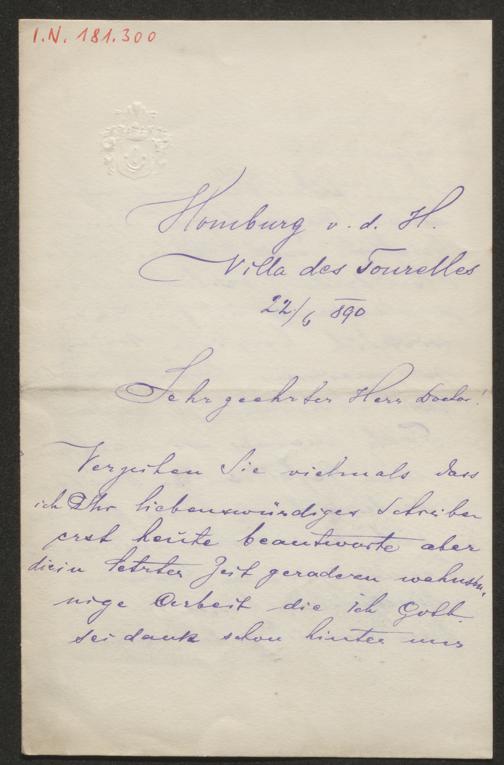 I.N. 181.300
Homburg v. d. H.
Villa des Tourelles
22/6 890
Sehr geehrter Herr Doctor!
Verzeihen Sie vielmals dass
ich Ihr liebenswürdiges Schreiben
erst heute beantworte aber
die in letzter Zeit geradezu wahnsin-
nige Arbeit die ich Gott
sei dank schon hinter mir